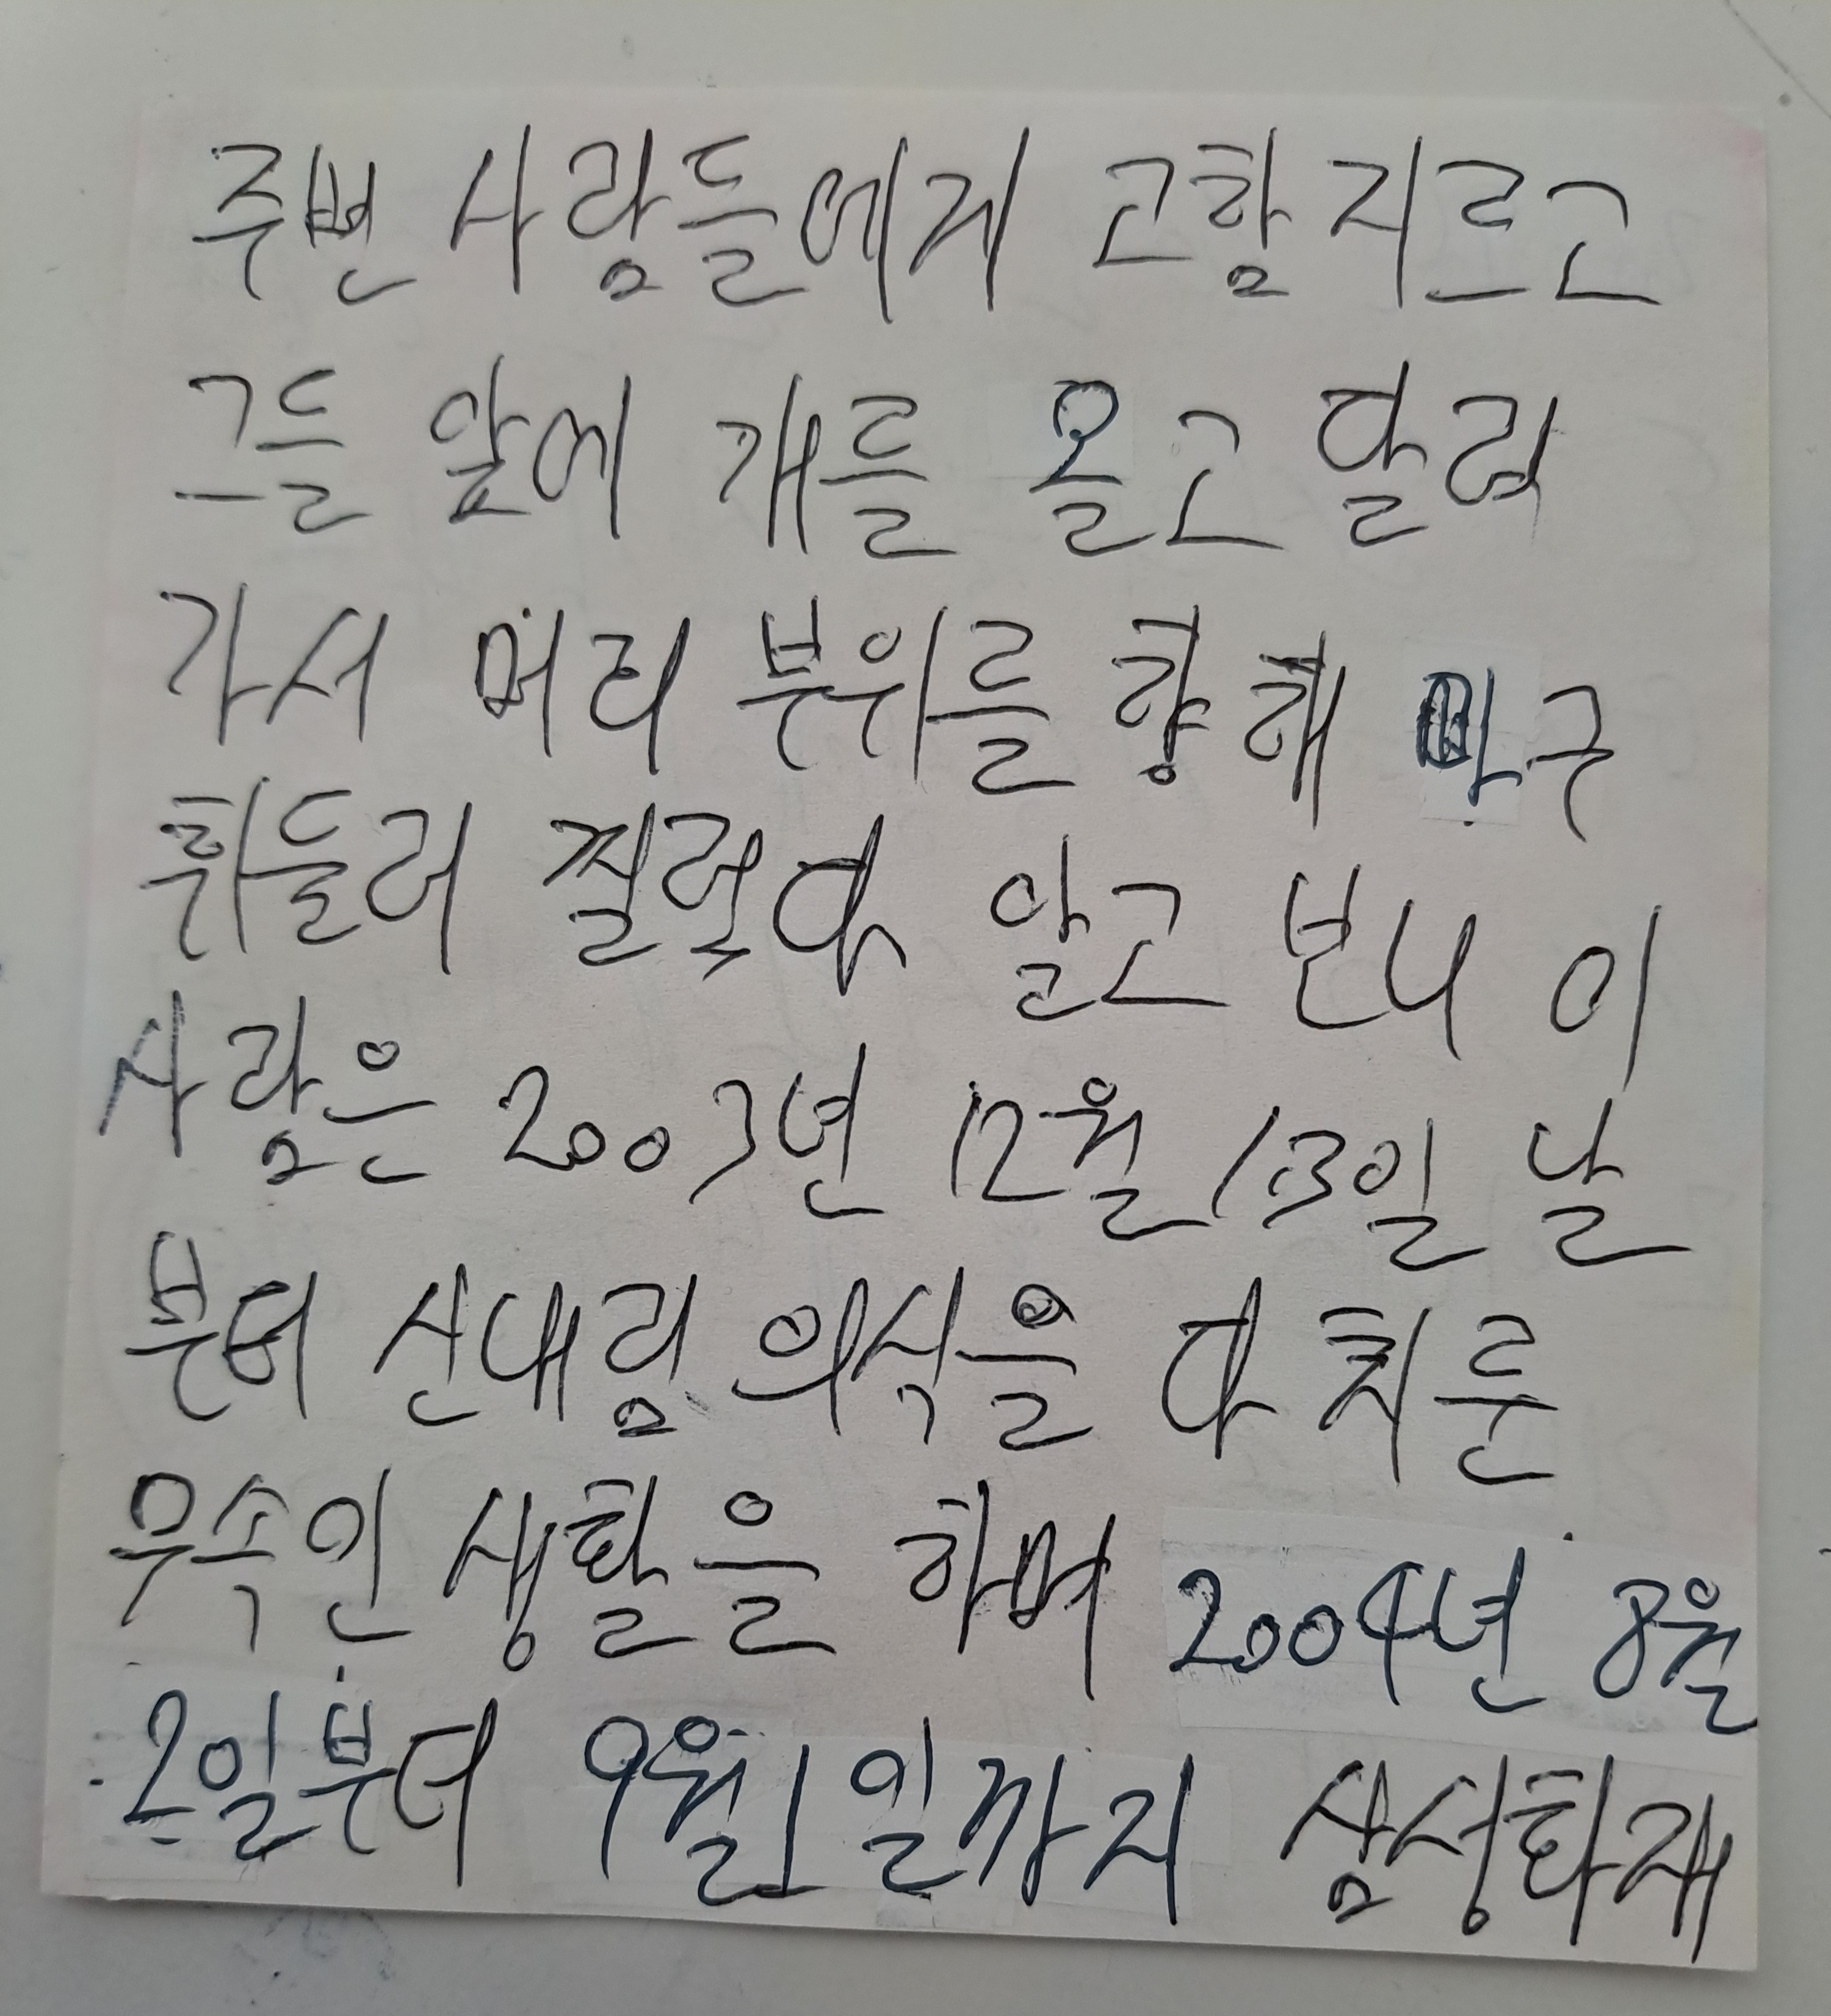 주변 사람들에게 고함 지르고
그들 앞에 개를 몰고 달려
가서 머리 부위를 향해 마구
휘둘러 찔렀다 알고 보니 이
사람은 2003년 12월 13일 날
부터 신내림 의식을 다 치룬
무속인 생활을 하며 2004년 8월
2일부터 9월 1일까지 삼성화재